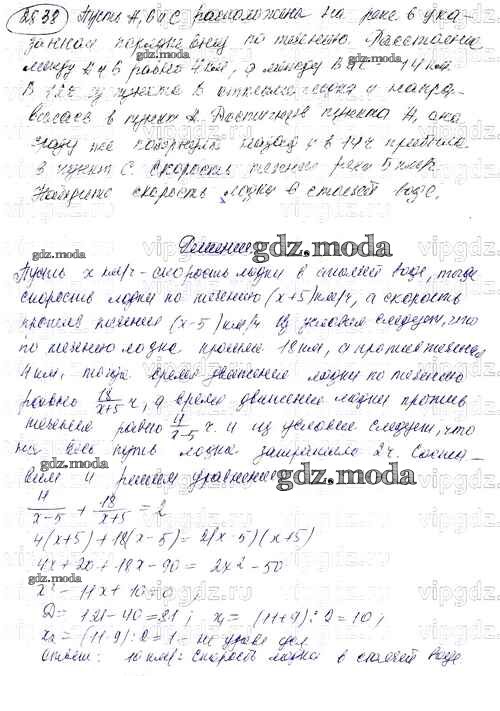 25.32 Пункты А, В и С расположены на реке в ука-
занном порядке вниз по течению. Расстояние
между А и В равно 4 км, а между В и С - 14 км.
В 12 ч из пункта В отплыла лодка и напра-
вилась в пункт А. Достигнув пункта А, она
сразу же повернула назад и в 14 ч прибыла
в пункт С. Скорость течения реки 5 км/ч.
Найдите скорость лодки в стоячей воде.
Решение.
gdz.moda
Пусть х км/ч - скорость лодки в стоячей воде, тогда
скорость лодки по течению (х+5) км/ч, а скорость
против течения (х-5) км/ч. Из условия следует, что
по течению лодка прошла 18 км, а против течения
4 км, тогда время движения лодки по течению
равно 18/х+5 ч, а время движения лодки против
течения равно 4/х-5 ч. и из условия следует, что
на весь путь лодка затратила 2 ч. Соста-
вим и решим уравнение
4/х-5 + 18/х+5 = 2
4(х+5) + 18(х-5) = 2(х-5)(х+5)
4х + 20 + 18х - 90 = 2х² - 50
х² - 11х + 10 = 0
D = 121 - 40 = 81; х₁ = (11+9):2 = 10;
х₂ = (11-9):2 = 1 - не удов. усл.
Ответ: 10 км/ч скорость лодки в стоячей воде.